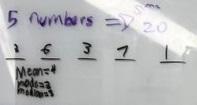 5 numbers => sms 20
3 6 3 7 1
Mean=4
mode=3
median=3